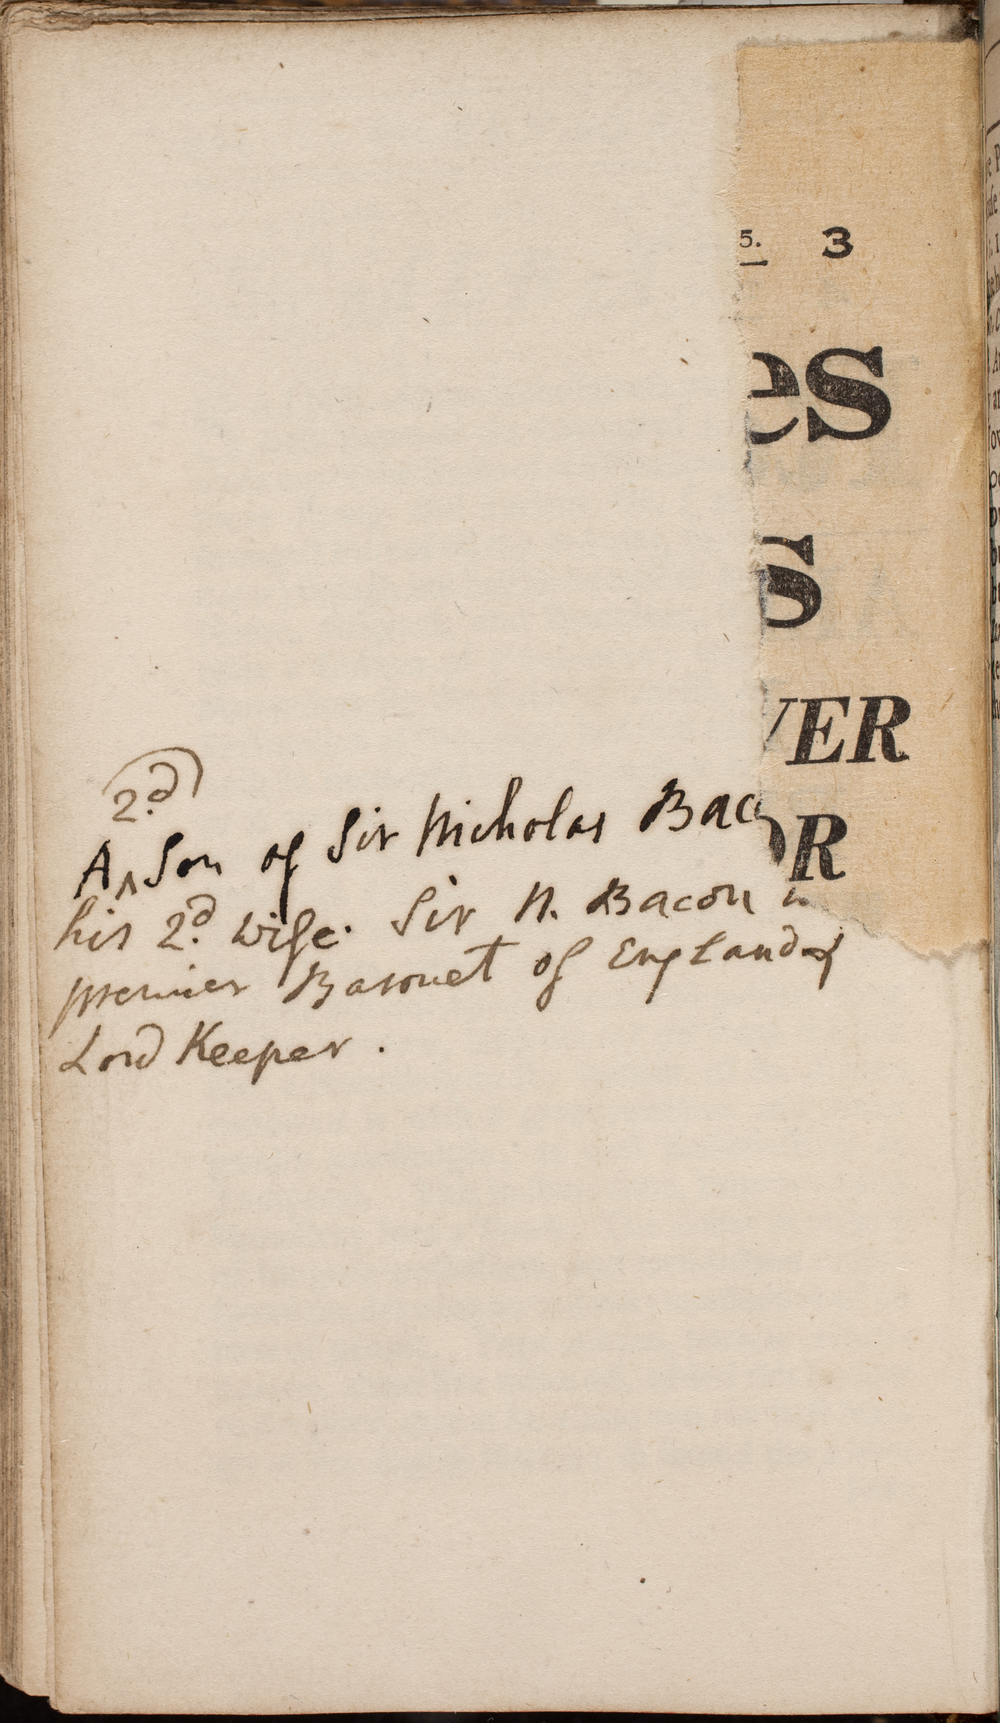 5. 3
es
s
VER
OR
2d
A ^ Son of Sir Nicholas Bac
his 2d wife. Sir N. Bacon
premier Baronet of England &
Lord Keeper.